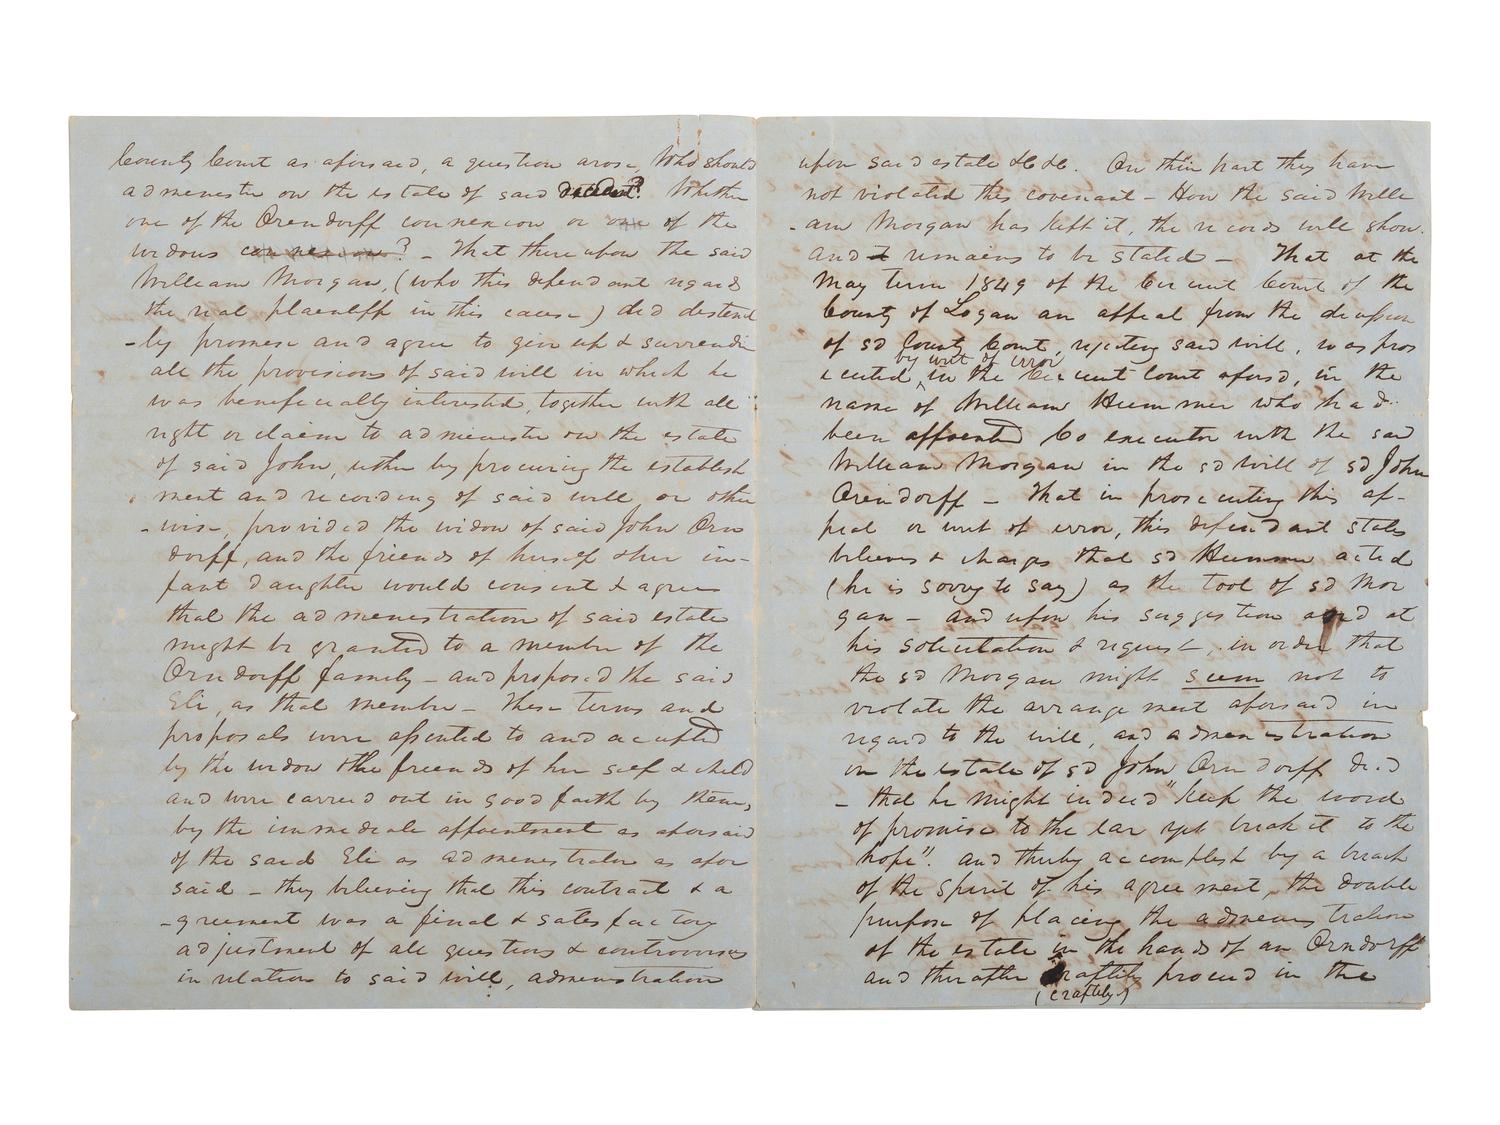 County Court as aforsaid, a question arose, Who should
administer on the estate of said decedent? Whether
one of the Orendorff connexion or one of the
widows connexion? - That thereupon the said
William Morgan, (who this defendant regards
the real plaintiff in this cause) did distend
-ly promise and agree to give up & surrender
all the provisions of said will in which he
was beneficially interested, together with all
right or claim to administer on the estate
of said John, either by procuring the establish
ment and recording of said will or other
-wise, provided the widow of said John Orn
dorff, and the friends of herself & her in-
fant daughter would consent & agree
that the administration of said estate
might be granted to a member of the
Orndorff family - and proposed the said
Eli, as that member - These terms and
proposals were assented to and accepted
by the widow & the friends of her self & child
and were carried out in good faith by them,
by the immediate appointment as aforsaid
of the said Eli as administrator as afor
said - they believing that this contract & a
-greement was a final & satisfactory
adjustment of all questions & controversies
in relation to said will, administration
upon said estate &c &c. On thier part they have
not violated this covenant - How the said Willi
-am Morgan has kept it, the records will show.
and it remains to be stated - That at the
May term 1849 of the Circuit Court of the
County of Logan an appeal from the decission
of sd County Court, rejecting said will, was pros
ecuted by writ of error in the Circuit Court aforsd, in the
name of William Hummer who had
been appointed Co executor with the said
William Morgan in the sd will of sd John
Orendorff - That in prosecuting this ap-
peal or writ of error, this defendant states
believes & charges that sd Hummer acted
(he is sorry to say) as the tool of sd Mor
gan - and upon his suggestion and at
his solicitation & request, in order that
the sd Morgan might seem not to
violate the arrangement aforsaid in
regard to the will, and administration
on the estate of sd John Orndorff decd
- that he might indeed "keep the word
of promise to the ear yet break it to the
hope". and thereby accomplish by a breach
of the spirit of his agreement, the double
purpose of placing the administration
of the estate in the hands of an Orndorff
and therafter craftily proceed in the
(craftily)